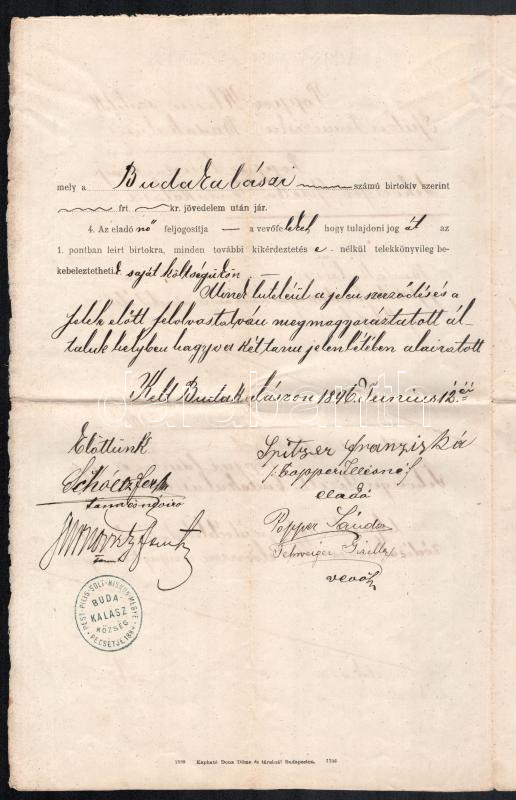 mely a Budakalászi számú birtokív szerint
frt kr. jövedelem után jár.
4. Az eladó nő feljogosítja — a vevőfeleket, hogy tulajdoni jog át az
1. pontban leirt birtokra, minden további kikérdeztetés e - nélkül telekkönyvileg be-
kebeleztetheti k saját költségükön.
Minek hiteléül a jelen szerződés a
felek előtt felolvastatván megmagyaráztatott ál-
taluk helyben hagyva két tanu jelenlétében aláiratott
Kelt Budakalászon 1896 Junius 12én
Előttünk
Spitzer Franziska
eladó
Popper Sándor
Schweiger Gizella
vevők
tanu
PEST-PILIS-SOLT-KISKUN MEGYE
BUDA-
KALASZ
KÖZSÉG
PECSÉTJE
darabanth
Kapható Deus Dénes és társánál Budapesten.